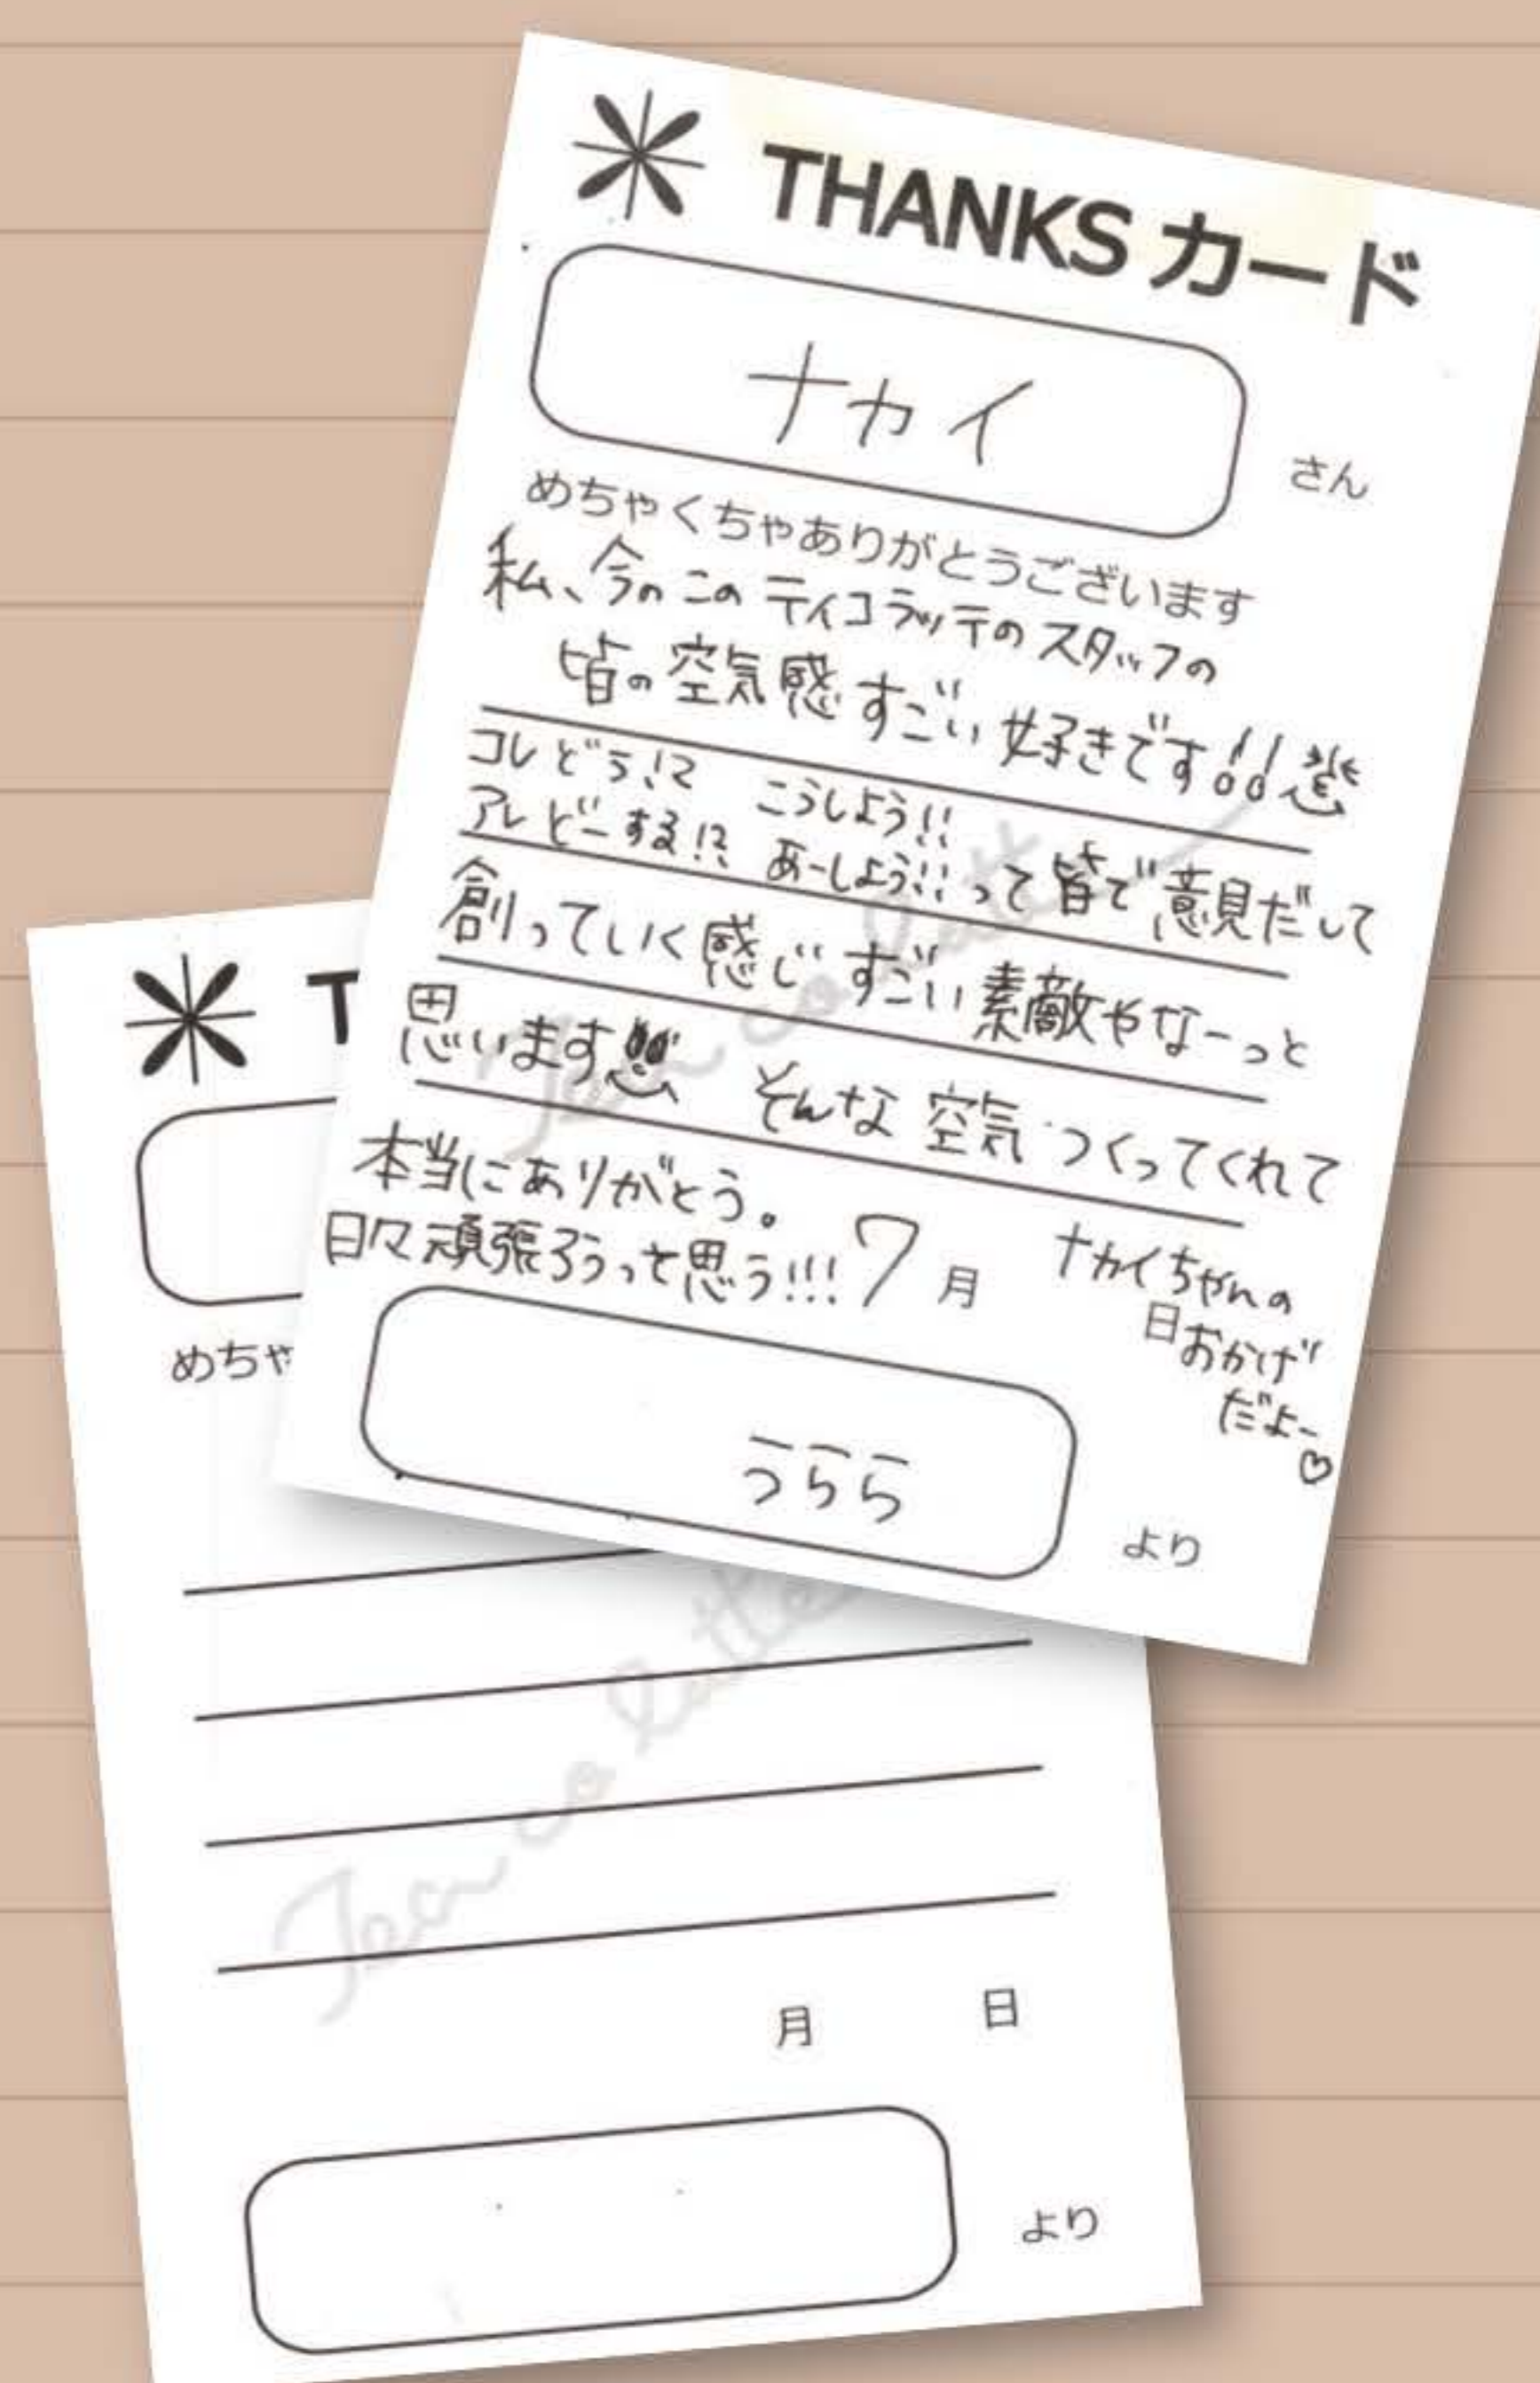 THANKS カード
ナカイ
さん
めちゃくちゃありがとうございます
私、今のこのティコラッテのスタッフの
皆の空気感すごい好きです!!
コレどう!? こうしよう!!
アレどーする!? あーしよう!!って皆で意見だして
創っていく感じすごい素敵やなーっと
思います そんな空気つくってくれて
本当にありがとう。
日々頑張ろうって思う!!!
7月 日
ナカイちゃんの
おかげ
だよー♡
うらら
より
T
めちゃ
Tea co latte
月 日
より